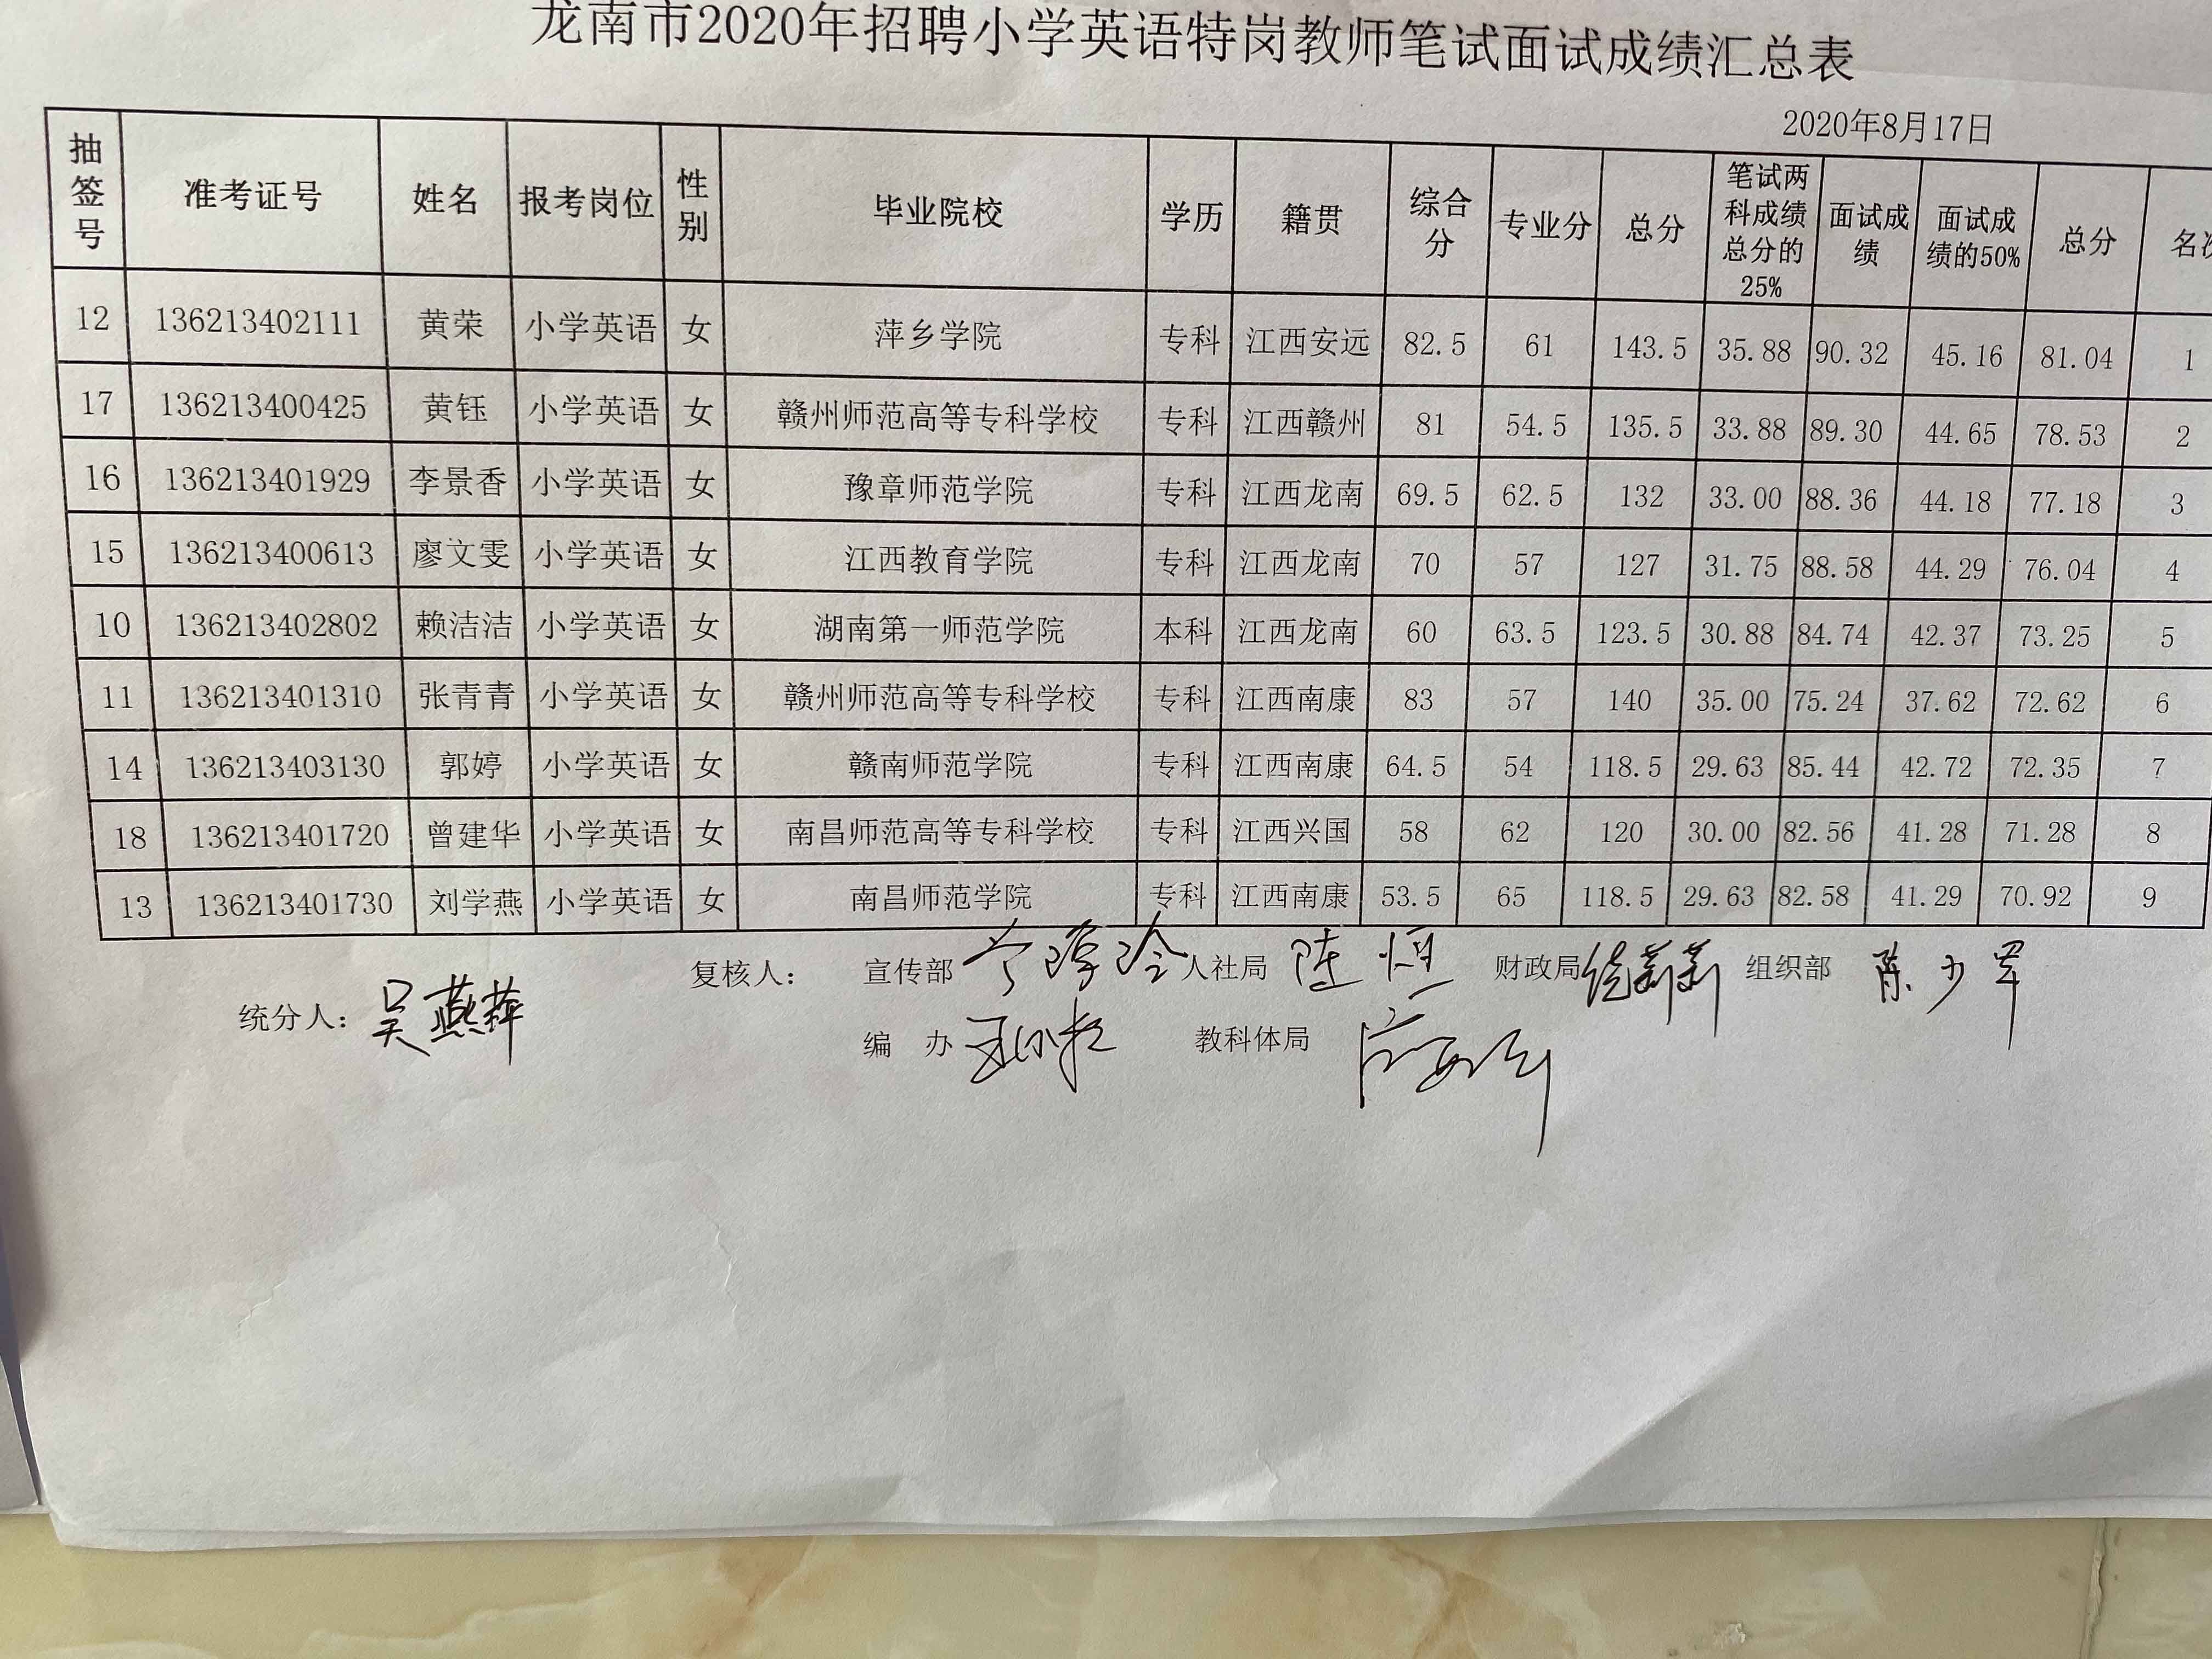 龙南市2020年招聘小学英语特岗教师笔试面试成绩汇总表
2020年8月17日
抽签号 准考证号 姓名 报考岗位 性别 毕业院校 学历 籍贯 综合分 专业分 总分 笔试两科成绩总分的25% 面试成绩 面试成绩的50% 总分 名次
12 136213402111 黄荣 小学英语 女 萍乡学院 专科 江西安远 82.5 61 143.5 35.88 90.32 45.16 81.04 1
17 136213400425 黄钰 小学英语 女 赣州师范高等专科学校 专科 江西赣州 81 54.5 135.5 33.88 89.30 44.65 78.53 2
16 136213401929 李景香 小学英语 女 豫章师范学院 专科 江西龙南 69.5 62.5 132 33.00 88.36 44.18 77.18 3
15 136213400613 廖文雯 小学英语 女 江西教育学院 专科 江西龙南 70 57 127 31.75 88.58 44.29 76.04 4
10 136213402802 赖洁洁 小学英语 女 湖南第一师范学院 本科 江西龙南 60 63.5 123.5 30.88 84.74 42.37 73.25 5
11 136213401310 张青青 小学英语 女 赣州师范高等专科学校 专科 江西南康 83 57 140 35.00 75.24 37.62 72.62 6
14 136213403130 郭婷 小学英语 女 赣南师范学院 专科 江西南康 64.5 54 118.5 29.63 85.44 42.72 72.35 7
18 136213401720 曾建华 小学英语 女 南昌师范高等专科学校 专科 江西兴国 58 62 120 30.00 82.56 41.28 71.28 8
13 136213401730 刘学燕 小学英语 女 南昌师范学院 专科 江西南康 53.5 65 118.5 29.63 82.58 41.29 70.92 9
复核人： 宣传部 人社局 陈恒 财政局 组织部 陈少军
统分人： 吴燕萍 编 办 教科体局